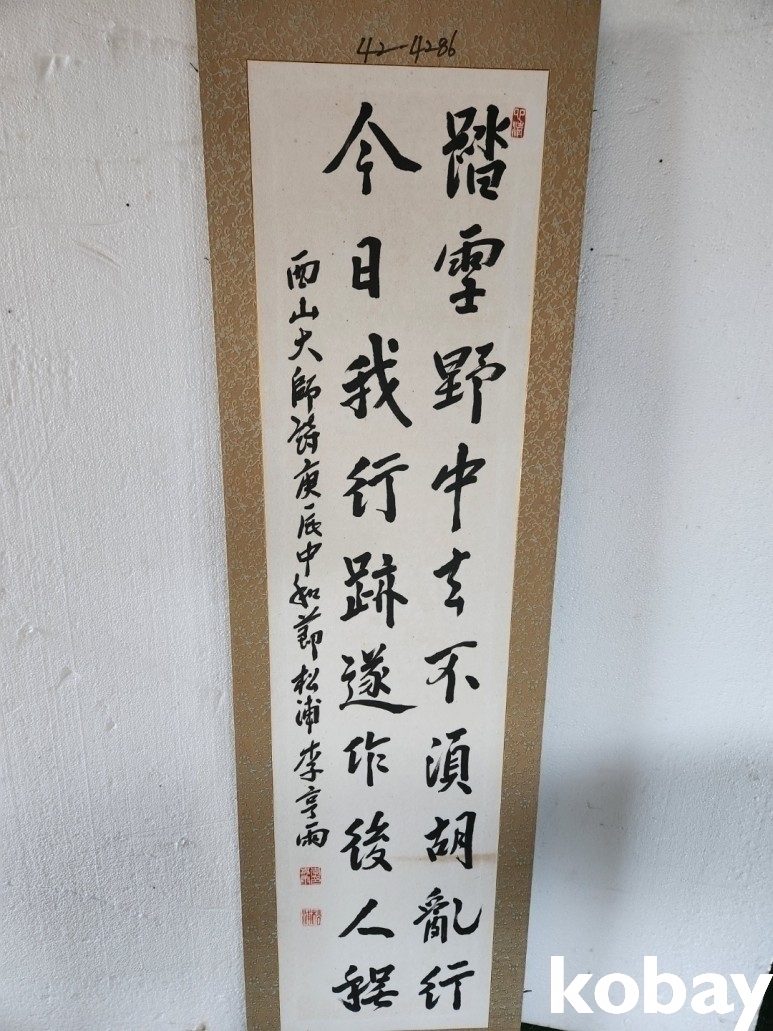 42-4286
踏雪野中去不須胡亂行
今日我行跡遂作後人程
西山大師詩庚辰中和節松浦李亨雨
kobay